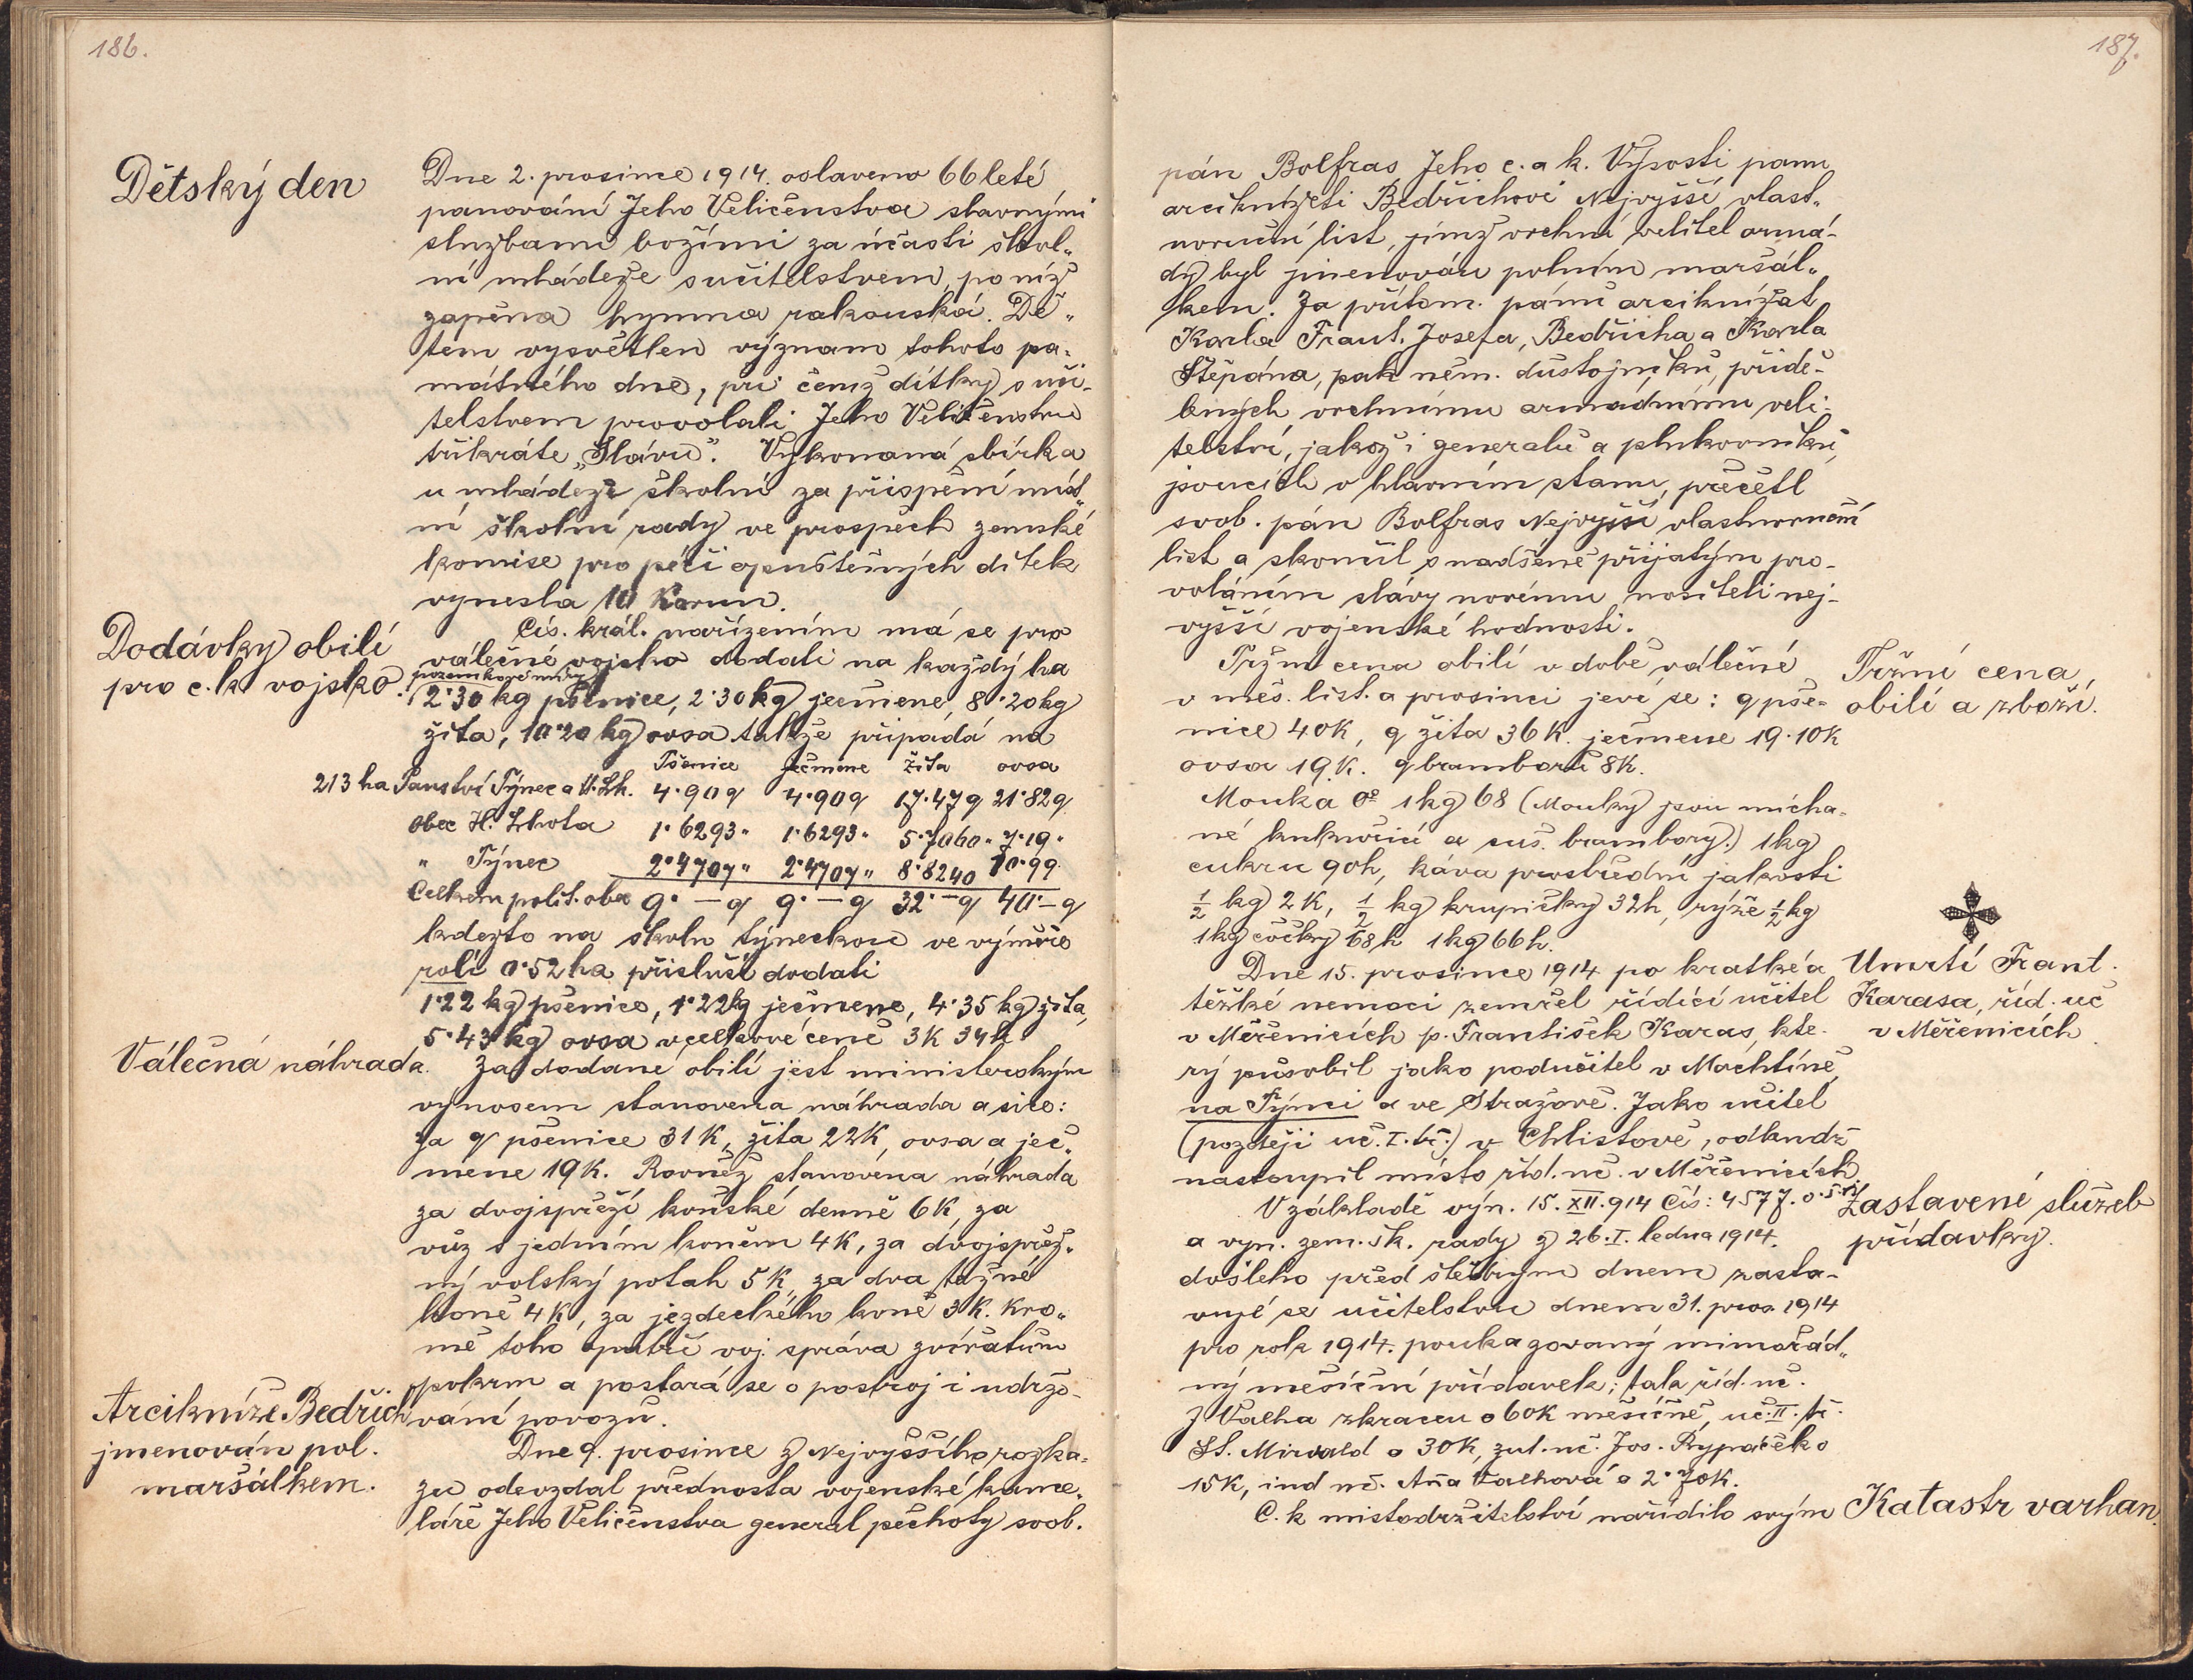 186.
Dětský den
Dne 2. prosince 1914. oslaveno 66 leté
panování Jeho Veličenstva slavnými
službami božími za účasti škol„
ní mládeže s učitelstvem, po níž
zapěna hymna rakouská. Dě„
tem vysvětlen význam tohoto pa„
mátného dne, při čemž dítky s uči-
telstvem provolali Jeho Veličenstvu
třikráte „Slávu“. Vykonaná sbírka
u mládeže školní za přispění míst„
ní školní rady ve prospěch zemské
komise pro péči opuštěných dítek
vynesla 10 Korun.
Dodávky obilí
pro c. k. vojsko.
Cís. král. nařízením má se pro
válečné vojsko dodati na každý ha
pozemkové míry
2·30 kg pšenice, 2·30 kg ječmene, 8·20 kg
žita, 10·20 kg ovsa takže připadá na
Pšenice ječmene žita ovsa
213 ha Panství Týnec a H. Lh. 4·90 q 4·90 q 17·47 q 21·82 q
Obec H. Lhota 1·6293 „ 1·6293 „ 5·7060 „ 7·19 „
„ Týnec 2·4707 „ 2·4707 „ 8·8240 10·99
Celkem polit. obec 9·— q 9·— q 32·— q 40·— q
kdežto na školu týneckou ve výměře
rolí 0·52 ha přísluší dodati
1·22 kg pšenice, 1·22 kg ječmene, 4·35 kg žita,
5·43 kg ovsa v celkové ceně 3K 34h
Válečná náhrada.
Za dodané obilí jest ministerským
výnosem stanovena náhrada a sice:
za q pšenice 31 K, žita 22K, ovsa a ječ„
mene 19 K. Rovněž stanovena náhrada
za dvojspřeží koňské denně 6K, za
vůz s jedním koněm 4K, za dvojspřež„
ný volský potah 5K, za dva tažné
koně 4K, za jezdeckého koně 3K. Kro„
mě toho opatří voj. správa zvířatům
pokrm a postará se o postroj i udržo-
vání povozů.
Arcikníže Bedřich
jmenován pol.
maršálkem.
Dne 9. prosince z Nejvyššího rozka„
zu odevzdal přednosta vojenské kance„
láře Jeho Veličenstva general pěchoty svob.
187.
pán Bolfras Jeho c. a k. Výsosti panu
arciknížeti Bedřichovi Nejvyšší vlast„
noruční list, jímž vrchní velitel armá-
dy byl jmenován polním maršál„
kem. Za přítom. pánů arciknížat
Karla Frant. Josefa, Bedřicha a Karla
Štěpána, pak něm. důstojníků, přidě-
lených vrchnímu armadnímu veli-
telství, jakož i generalů a plukovníků,
jsoucích v hlavním stanu, přečetl
svob. pán Bolfras Nejvyšší vlastnoruční
list a skončil s nadšeně přijatým pro-
voláním slávy novému nositeli nej-
vyšší vojenské hodnosti.
Tržní cena
obilí a zboží.
Tržní cena obilí v době válečné
v měs. list. a prosinci jeví se: q pše-
nice 40K, q žita 36 K. ječmene 19·10K
ovsa 19.K. q bramborů 8K.
Mouka 0° 1kg 68 (Mouky jsou mícha-
né kukuřicí a suš. brambory.) 1kg
cukru 90h, káva prostřední jakosti
½ kg 2K, ½ kg krupičky 32h, rýže ½ kg
1kg čočky 68h 1kg 66h.
Umrtí Frant.
Karasa, říd. uč
v Měčenicích
Dne 15. prosince 1914 po kratké a
těžké nemoci zemřel řídící učitel
v Měčenicích p. František Karas, kte-
rý působil jako podučitel v Mochtíně,
na Týnci a ve Strážově. Jako učitel
(později uč. I. tř.) v Chlistově, odkudž
nastoupil místo říd. uč. v Měčenicích
Zastavené služeb
přídavky.
V základě výn. 15. XII. 914 Čís: 4577. o.š.r.
a vyn. zem. šk. rady z 26. I. ledna 1914.
došlého před štědrým dnem zasta-
vuje se učitelstvu dnem 31. pros. 1914
pro rok 1914. poukazovaný mimořád„
ný měsíční přídavek; tak říd. uč.
J. Valha zkracen o 60K měsíčně, uč. II. tř.
St. Mirvald o 30K, zat. uč. Jos. Rypáček o
15K, ind uč. Ana Valhová o 2·70K.
Katastr varhan.
C. k mistodržitelství nařídilo svým